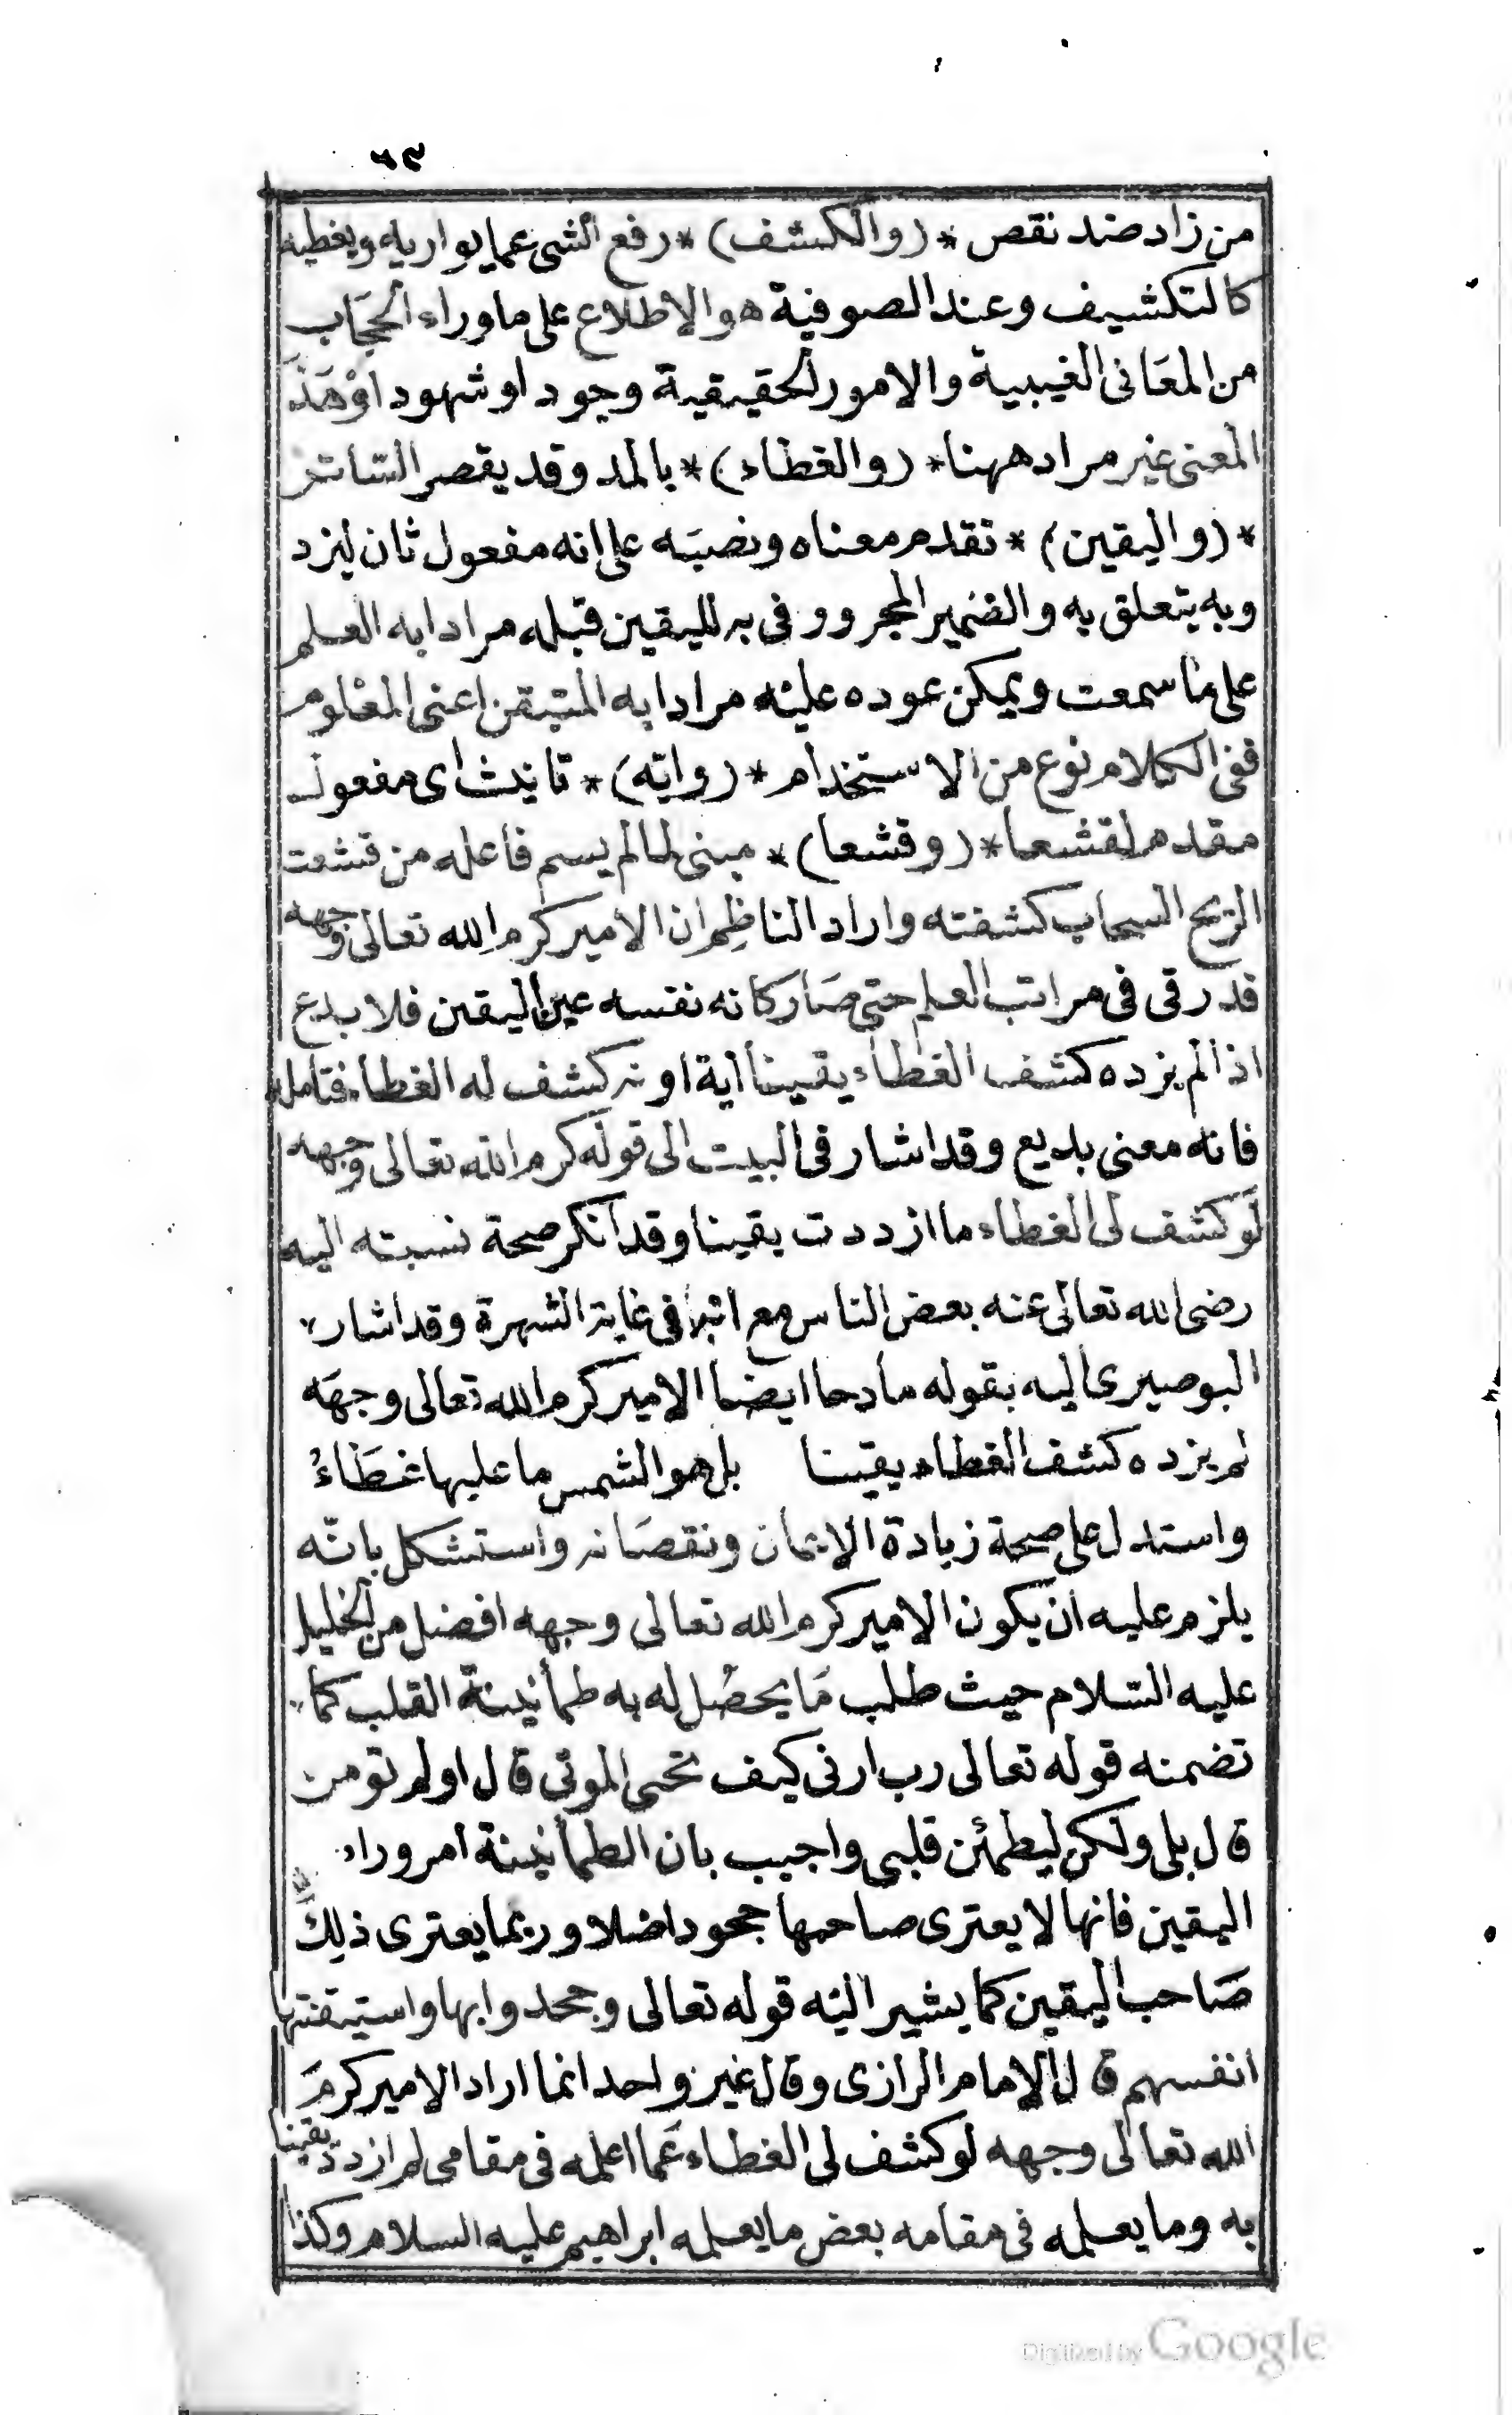 ٦٩
من زاد ضد نقص * (والكشف) * رفع الشى عما يواريه ويغطيه
كالتكشيف وعند الصوفية هو الاطلاع على ما وراء الحجاب
من المعانى الغيبية والامور الحقيقية وجود او شهود او هذا
المعنى غير مراد ههنا * (والغطاء) * بالمد وقد يقصر الساتر
* (واليقين) * تقدم معناه ونصبه على انه مفعول ثان ليزد
وبه يتعلق به والضمير المجرور فى به لليقين قبله مرادا به العلم
على ما سمعت ويمكن عوده عليه مرادا به المتيقن اعنى المعلوم
ففى الكلام نوع من الاستخدام * (واية) * تانيث اى مفعول
مقدم لقشعا * (وقشعا) * مبنى لما لم يسم فاعله من قشعت
الريح السحاب كشفته واراد الناظم ان الامير كرم الله تعالى وجهه
قد رقى فى مراتب العلم حتى صار كانه نفسه عين اليقين فلا بدع
اذا لم يزده كشف الغطاء يقينا اية اونه كشف له الغطاء فتامل
فانه معنى بديع وقد اشار فى البيت الى قوله كرم الله تعالى وجهه
لو كشف لى الغطاء ما ازددت يقينا وقد انكر صحة نسبته اليه
رضى الله تعالى عنه بعض الناس مع انها فى غاية الشهرة وقد اشار
البوصيرى اليه بقوله مادحا ايضا الامير كرم الله تعالى وجهه
لم يزده كشف الغطاء يقينا بل هو الشمس ما عليها غطاء
واستدل على صحة زيادة الايمان ونقصانه واستشكل بانه
يلزم عليه ان يكون الامير كرم الله تعالى وجهه افضل من الخليل
عليه السلام حيث طلب ما يحصل له به طمأنينة القلب كما
تضمنه قوله تعالى رب ارنى كيف تحى الموتى قال اولم تومن
قال بلى ولكن ليطمئن قلبى واجيب بان الطمأنينة امر وراء
اليقين فانها لا يعترى صاحبها جحود اصلا وربما يعترى ذلك
صاحب اليقين كما يشير اليه قوله تعالى وجحدوا بها واستيقنتها
انفسهم قال الامام الرازى وقال غير واحد انما اراد الامير كرم
الله تعالى وجهه لو كشف لى الغطاء عما اعلمه فى مقامى لم ازدد يقينا
به وما يعلمه فى مقامه بعض ما يعلمه ابراهيم عليه السلام وكذا
Digitized by Google